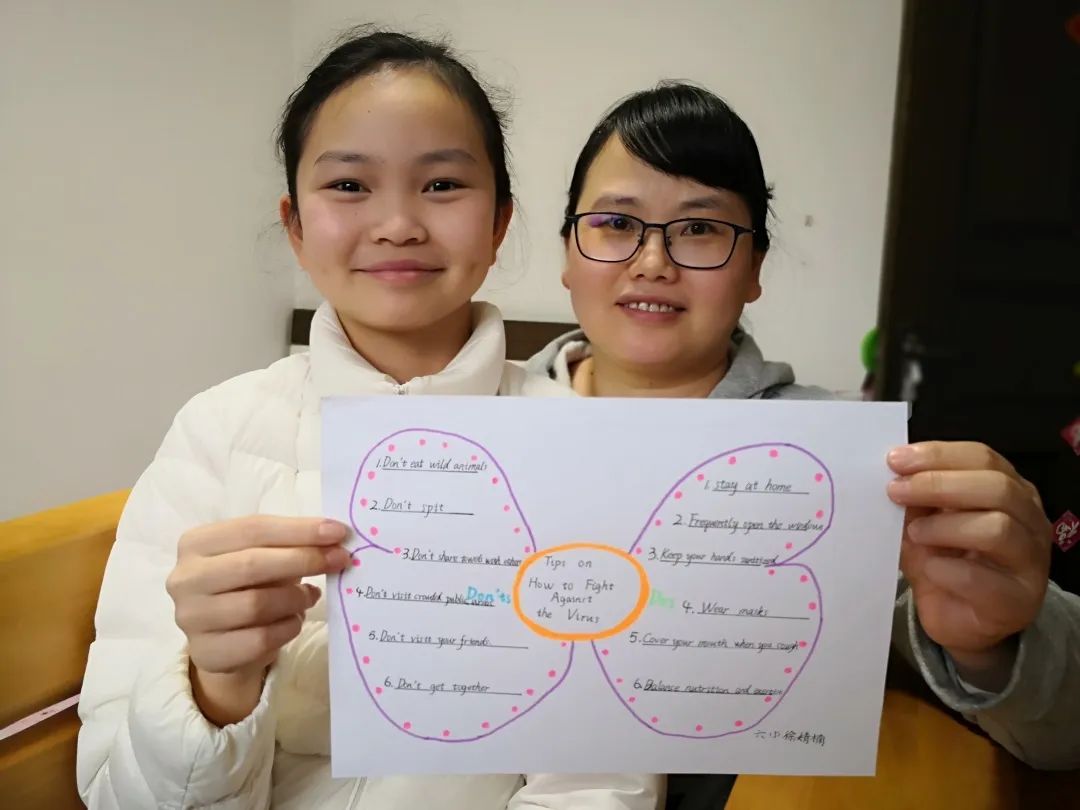 1. Don't eat wild animals
2. Don't spit
3. Don't share towels with others
4. Don't visit crowded public areas
5. Don't visit your friends
6. Don't get together
Don'ts
Tips on
How to Fight
Against
the Virus
Dos
1. stay at home
2. Frequently open the windows
3. Keep your hands sanitized
4. Wear masks
5. Cover your mouth when you cough
6. Balance nutrition and exercise
六小 徐婧楠